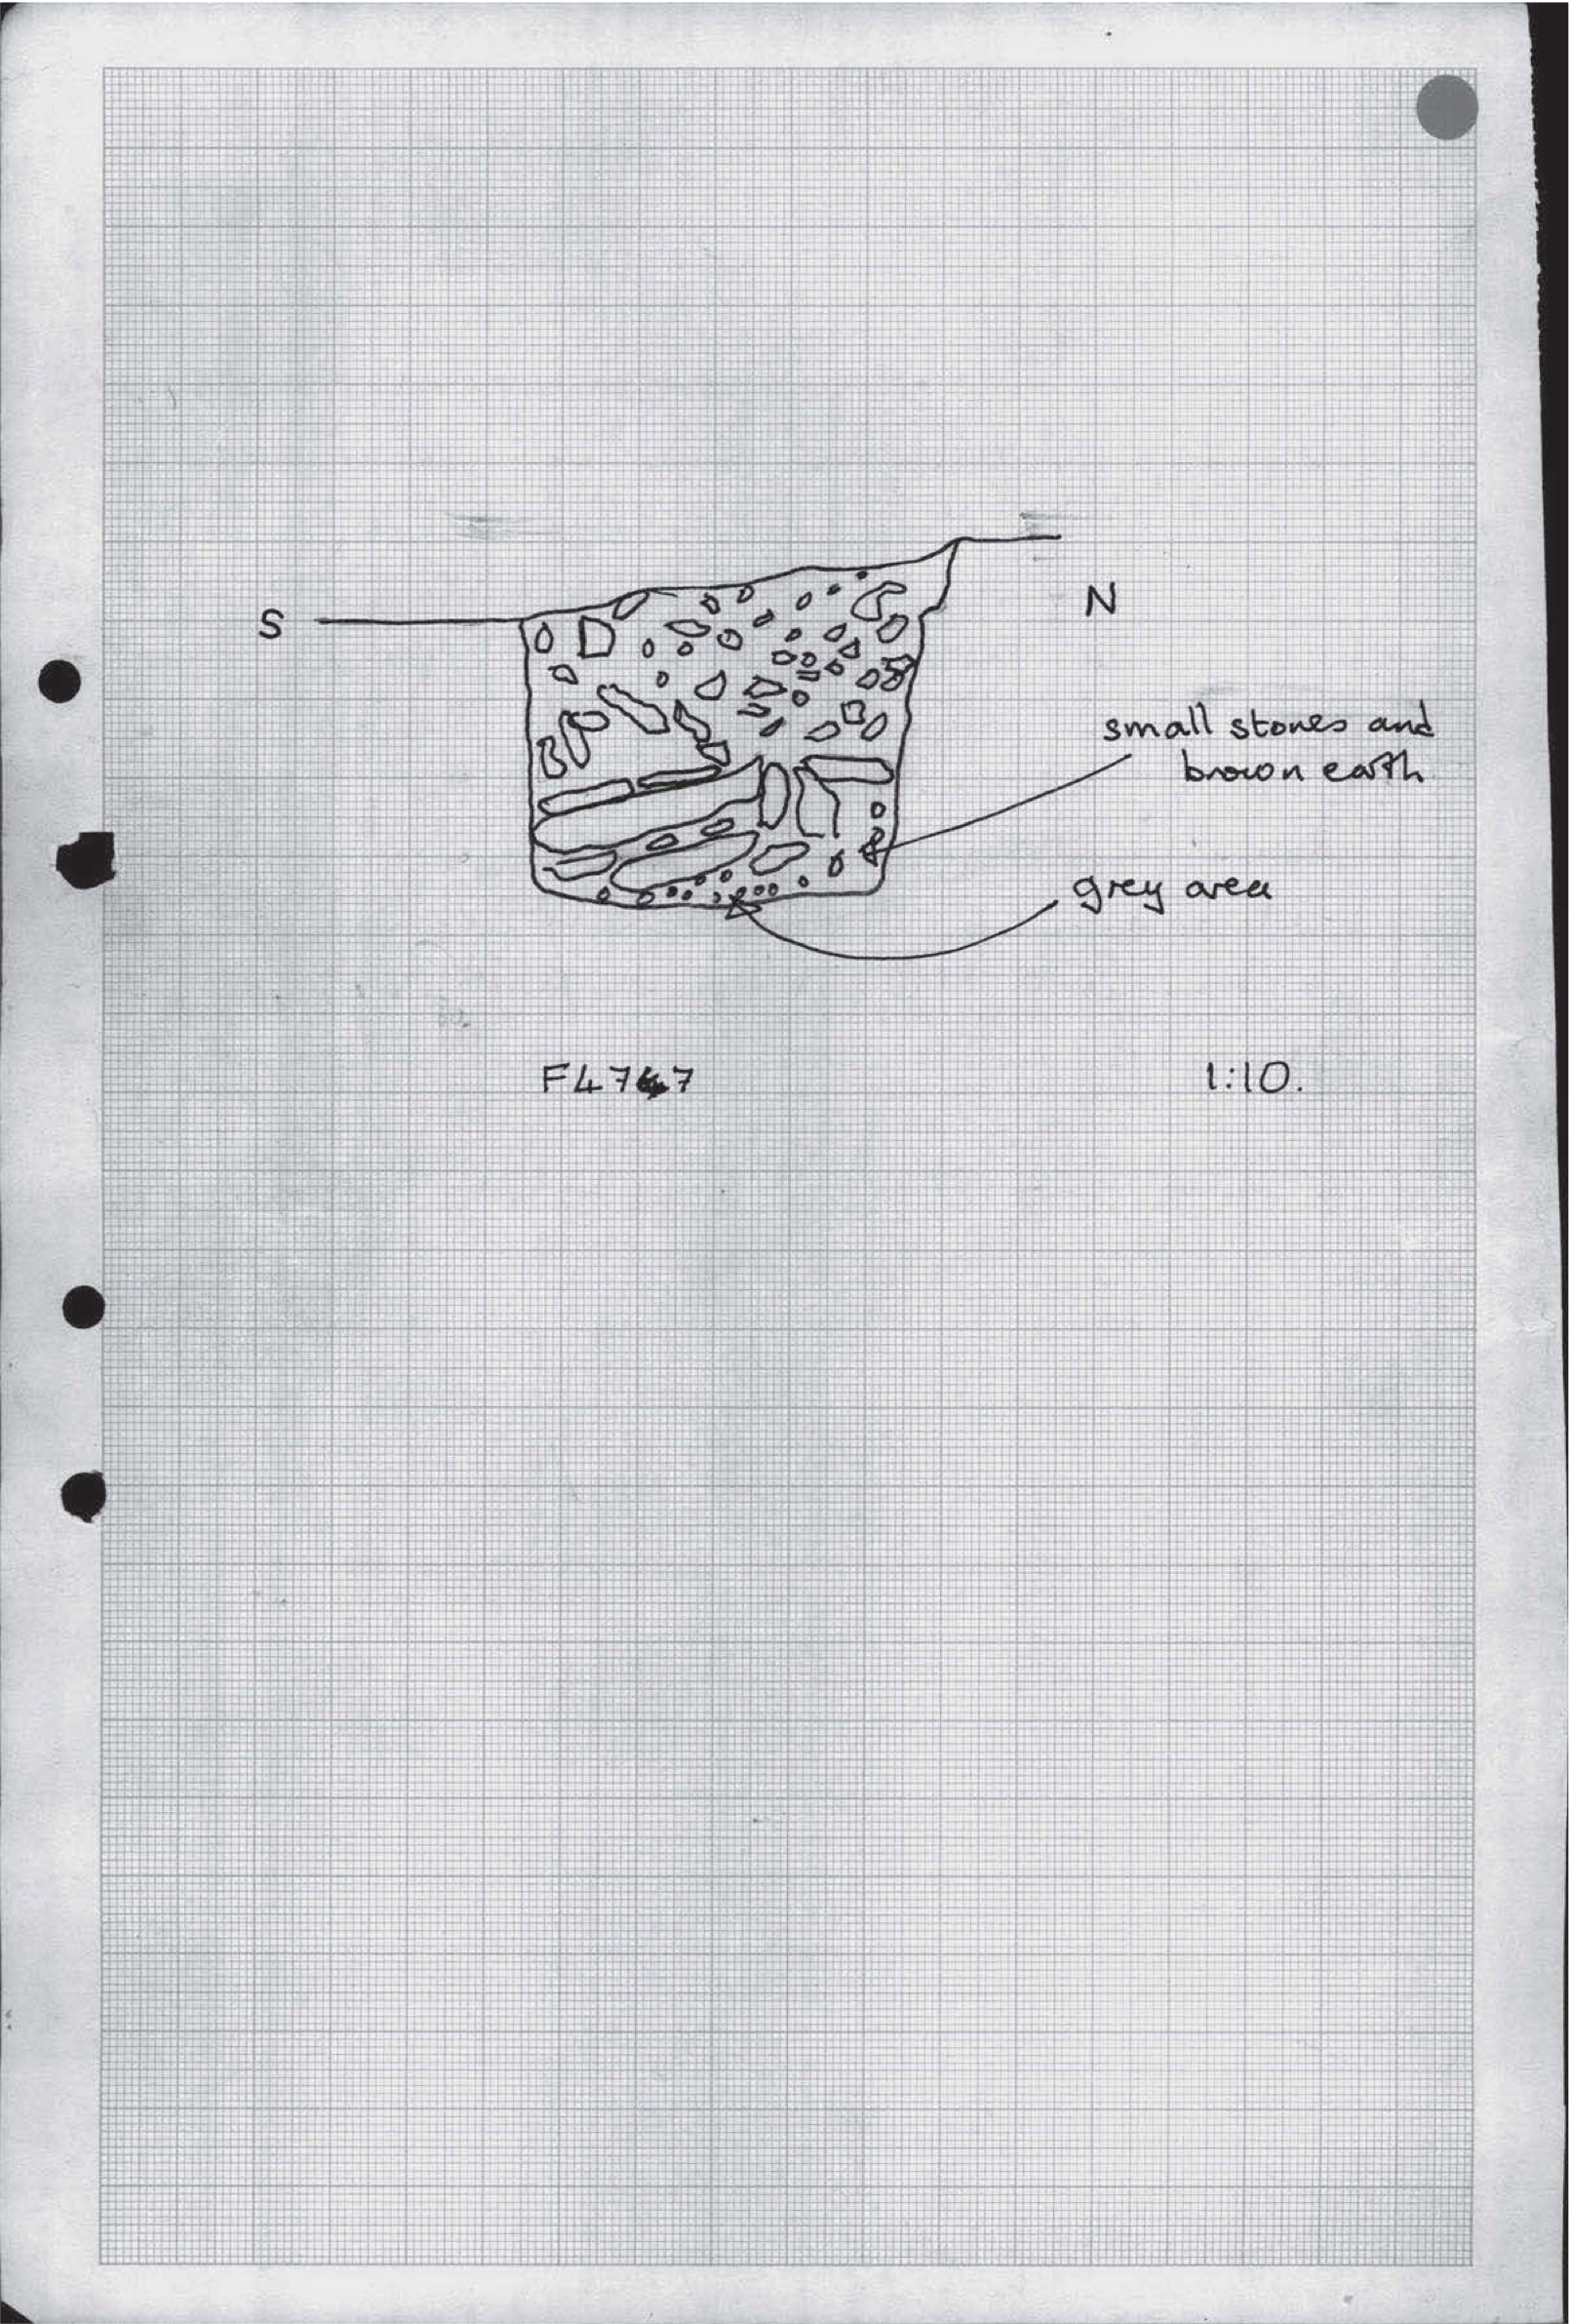 S
N
small stones and
brown earth
grey area
1:10.